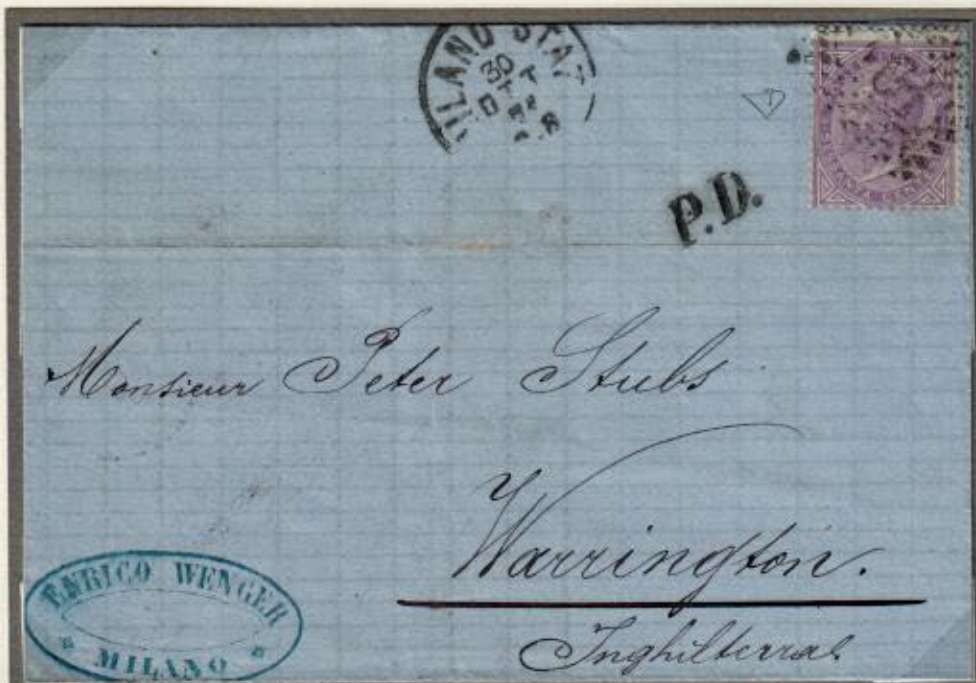 MILANO STAZ
30
P.D.
Monsieur Peter Stubs
Warrington.
Inghilterra
ENRICO WENGER
MILANO